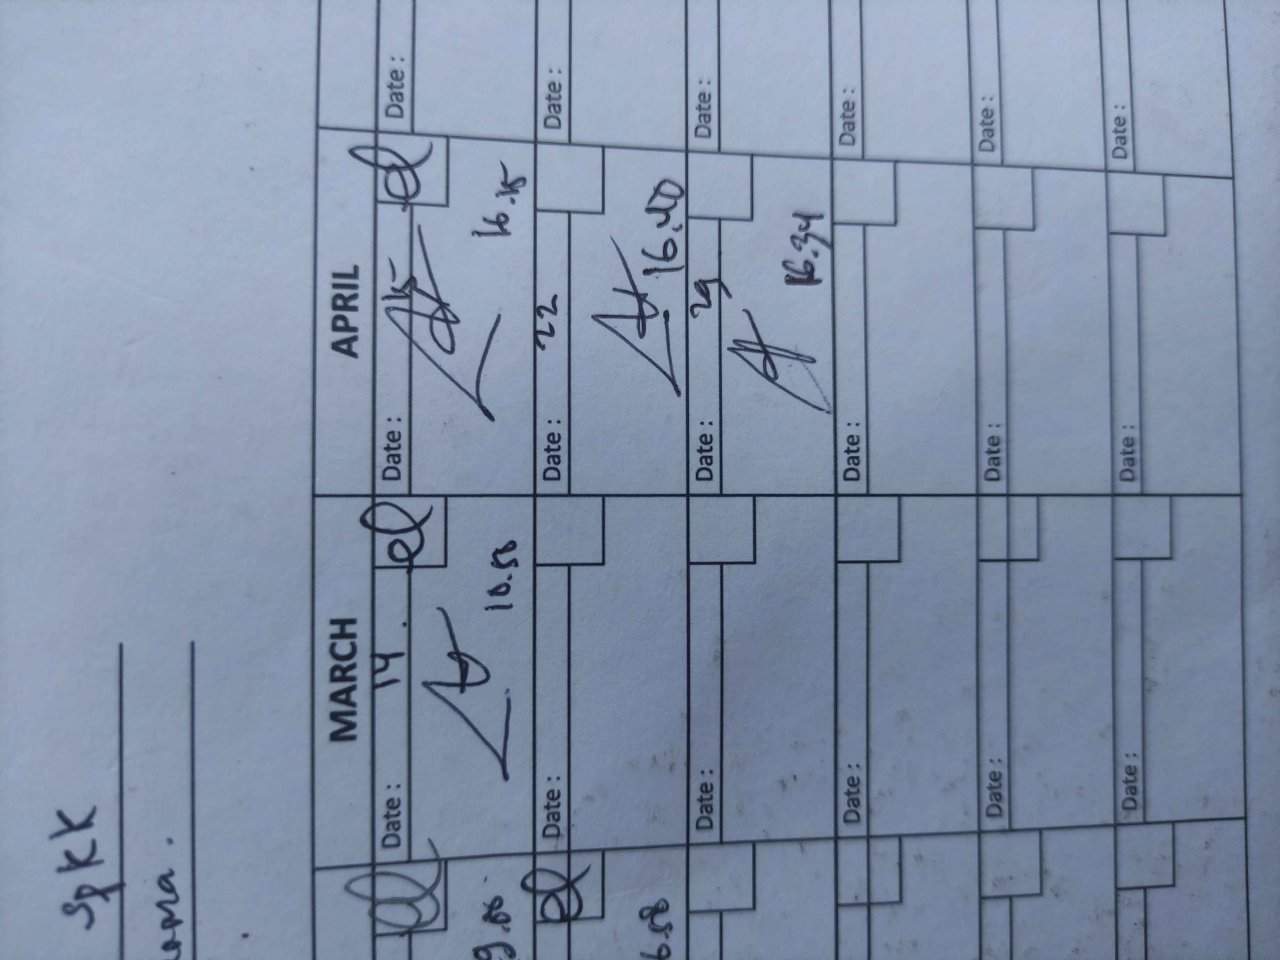 SPKK
MARCH
APRIL
Date : 14
el
10.58
Date : 15
el
16.15
Date :
el
Date :
Date : 22
16.40
Date :
6.58
Date :
Date : 29
16.34
Date :
Date :
Date :
Date :
Date :
Date :
Date :
Date :
Date :
Date :